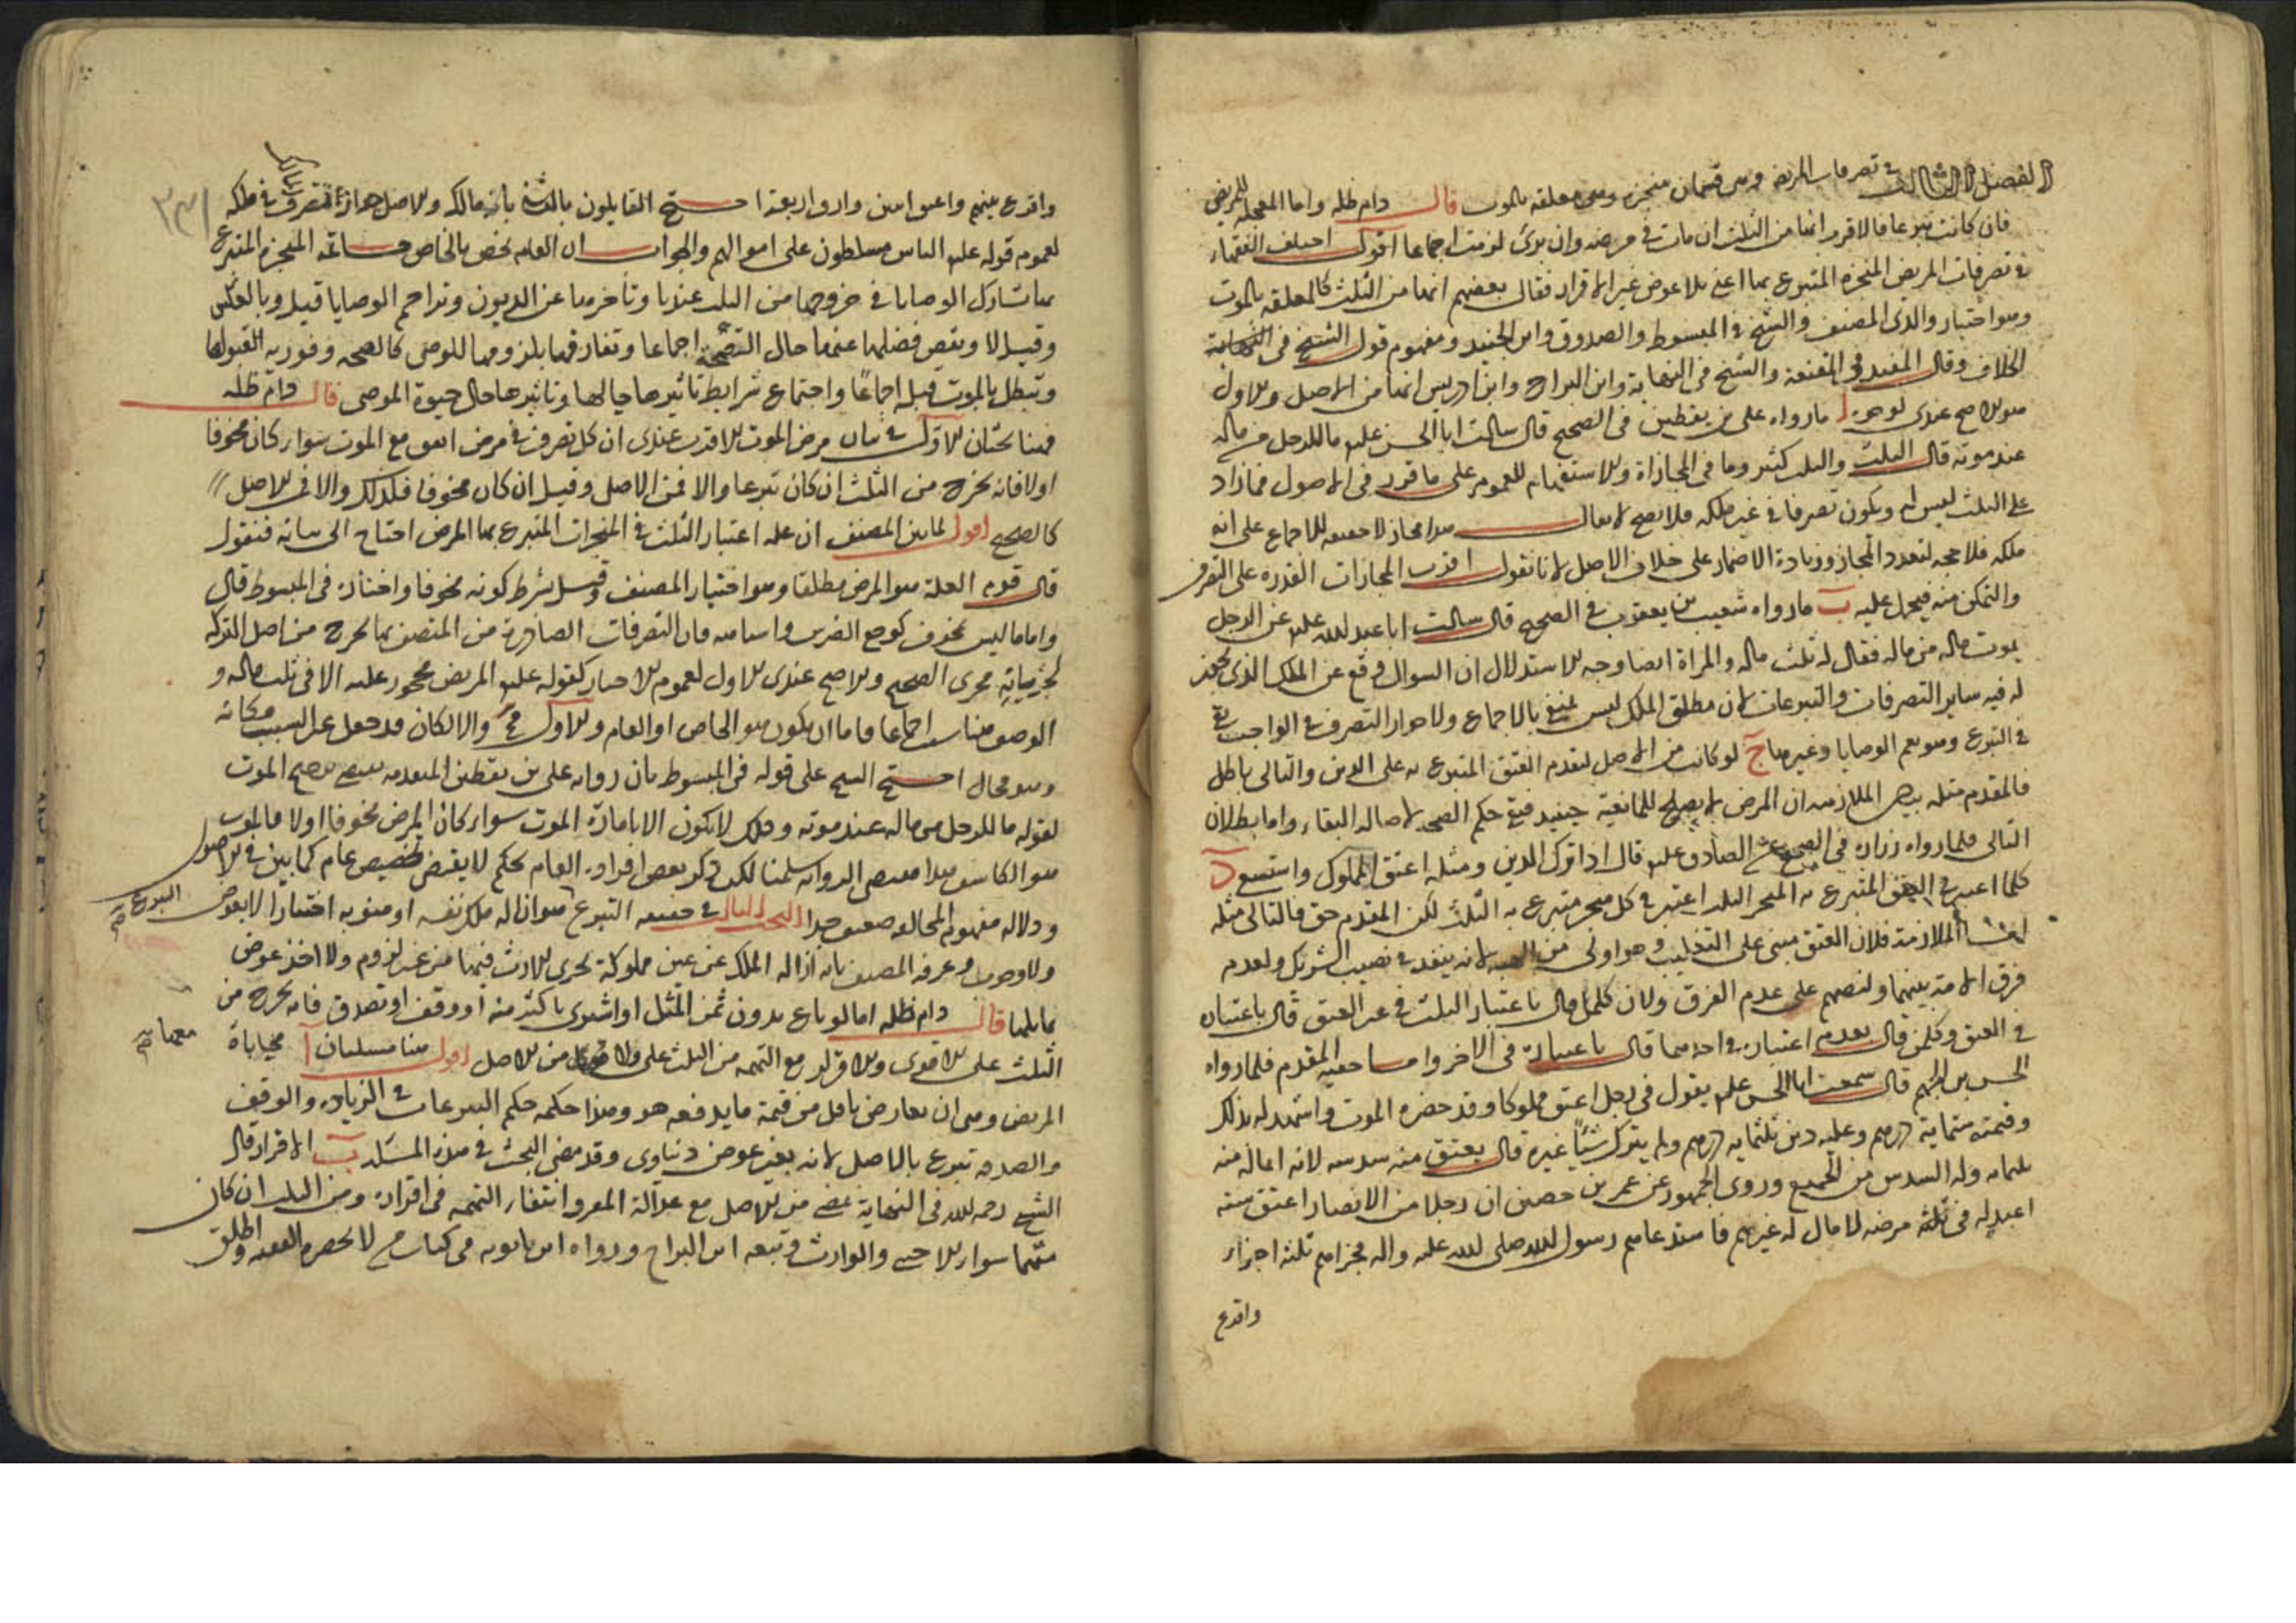 الفصل الثالث في تصرفات المريض وهى قسمان منجزه وهى معلقه بالموت قال دام ظله واما المعجله للمريض
فان كانت تبرعا فالاقرب انها من الثلث ان مات فى مرضه وان برئ لزمت اجماعا اقول اختلف الفقهاء
فى تصرفات المريض المنجزه المتبرع بها اعنى بلا عوض غير الاقرار فقال بعضهم انها من الثلث كالمعلقه بالموت
وهو اختيار والدى المصنف والشيخ فى المبسوط والصدوق وابن الجنيد ومفهوم قول الشيخ فى
الخلاف وقال المفيد فى المقنعة والشيخ فى النهاية وابن البراج وابن ادريس انها من الاصل والاول
هو الاصح عندى لوجوه ا مارواه على بن يقطين فى الصحيح قال سالت ابا الحسن عليه ما للرجل من ماله
عند موته قال الثلث والثلث كثير وما فى المجازاة والاستفهام للعموم على ما قرر فى الاصول فمازاد
على الثلث ليس له ويكون تصرفا فى غير ملكه فلا يصح لا يقال هذا مجاز لا حقيقه للاجماع على انه
ملكه فلا حجه لتعدد المجاز وزيادة الاضمار على خلاف الاصل لانا نقول اقرب المجازات القدره على التصرف
والتمكن منه فيحمل عليه ب مارواه شعيب بن يعقوب فى الصحيح قال سالت ابا عبد الله عليه عن الرجل
يموت ماله من ماله فقال له ثلث ماله والمراة ايضا وجه الاستدلال ان السوال وقع عن الملك الذى يجوز
له فيه ساير التصرفات والتبرعات لان مطلق الملك ليس بالاجماع ولا جواز التصرف فى الواجب
فى التبرع وهو يعم الوصايا وغيرها ج لو كانت من الاصل لتقدم العتق المتبرع به على الدين والتالى باطل
فالمقدم مثله بيان الملازمه ان المرض لا يصلح للمانعية حينيذ فيبقى حكم الصحه لاصاله البقاء واما بطلان
التالى فلما رواه زراره فى الصحيح عن الصادق عليه قال اذا ترك الدين ومثله اعتق المملوك واستسعى د
كلما اعتبر فى العتق المتبرع به المنجز الثلث اعتبر فى كل منجز متبرع به الثلث لكن المقدم حق فالتالى مثله
الملازمة فلان العتق مبنى على التغليب وهو اولى من لانه ينفذ فى نصيب الشريك ولعدم
فرق الامة بينهما ولنصهم على عدم الفرق ولان كلمن قال باعتبار الثلث فى غير العتق قال باعتباره
فى العتق وكلمن قال بعدم اعتباره فى احدهما قال باعتباره فى الاخر واما حقيه المقدم فلما رواه
الحسن بن الجهم قال سمعت ابا الحسن عليه يقول فى رجل اعتق مملوكا وقد حضره الموت واشهد له بذلك
وقيمته ستماية درهم وعليه دين ثلثماية درهم ولم يترك شيئا غيره قال يعتق منه سدسه لانه انما له منه
ثلثمايه وله السدس من الجميع وروى الجمهور عن عمر بن حصين ان رجلا من الانصار اعتق ستة
اعبد له فى مرضه لا مال له غيرهم فاستدعاهم رسول الله صلى الله عليه واله فجزاهم ثلثة اجزاء
واقرع
واقرع بينهم واعتق اثنين وارق اربعة احتج القايلون بالثانى بانه مالك والاصل جواز تصرفه فى ملكه
لعموم قوله عليه الناس مسلطون على اموالهم والجواب ان العام يخص بالخاص خاتمه المنجزه المتبرع
بها تشارك الوصايا فى خروجها من الثلث عندنا وتاخرها عن الديون وتزاحم الوصايا قيل وبالعكس
وقيل لا وينقص فضلها عنها حال الصحة اجماعا وتفارقها بلزومها للموصى كالصحه وفوريه القبول لها
وتبطل بالموت قبله اجماعا واجتماع شرايط تاثيرها حالها وتاثيرها حال حيوة الموصى قال دام ظله
فهنا بحثان الاول فى بيان مرض الموت الاقرب عندى ان كل تصرف فى مرض اتفق مع الموت سواء كان مخوفا
اولا فانه يخرج من الثلث ان كان تبرعا والا فمن الاصل وقيل ان كان مخوفا فكذلك والا فى الاصل
كالصحيح اقول لما بين المصنف ان عله اعتبار الثلث فى المنجزات المتبرع بها المرض احتاج الى بيانه فنقول
قال قوم العلة هو المرض مطلقا وهو اختيار المصنف وقيل بشرط كونه مخوفا واختاره فى المبسوط قال
واما ما ليس بمخوف كوجع الضرس واشباهه فان التصرفات الصادرة من المتصف بها يخرج من اصل التركه
مجرى الصحيح والاصح عندى الاول لعموم الاخبار كقوله عليه المريض محجور عليه الا فى ثلث ماله و
الوصف مناسب اجماعا فاما ان يكون هو الخاص او العام والاول والا لكان مكانه
وهو محال احتج الشيخ على قوله فى المبسوط بان رواية على بن يقطين المتقدمه الموت
لقوله ما للرجل من ماله عند موته وذلك لا يكون الا بامارة الموت سواء كان المرض مخوفا اولا فالموت
هو الكاشف هذا الروايه سلمنا لكن ذكر بعض افراد العام بحكم لا يقتضى تخصيص عام كما بين فى الاصول
ودلاله مفهوم المخالفه ضعيف جدا البحث الثانى فى حقيقه التبرع هو ازاله ملك نفسه او منو به اختيارا لا بعوض
ولا وجوب وعرفه المصنف بانه ازاله الملك عن عين مملوكة يجرى الارث فيها من غير لزوم ولا اخذ عوض
يماثلها قال دام ظله اما لو باع بدون ثمن المثل او اشترى باكثر منه او وقف او تصدق فانه يخرج من
الثلث على الاقوى والاقرار مع التهمه من الثلث على من الاصل اقول هنا مسئلتان ا محاباة
المريض وهى ان يعارض باقل من قيمة ما يدفعه هو وهذا حكمه حكم التبرعات فى الزياده والوقف
والصدقه تبرع بالاصل لانه بغير عوض دنياوى وقد مضى البحث فى هذه المسئله ب الاقرار قال
الشيخ رحمه الله فى النهاية يمضى من الاصل مع عدالة المقر وانتفاء التهمه فى اقراره ومن الثلث ان كان
متهما سواء الاجنبى والوارث وتبعه ابن البراج ورواه ابن بابويه فى كتاب من لا يحضره الفقيه واطلق